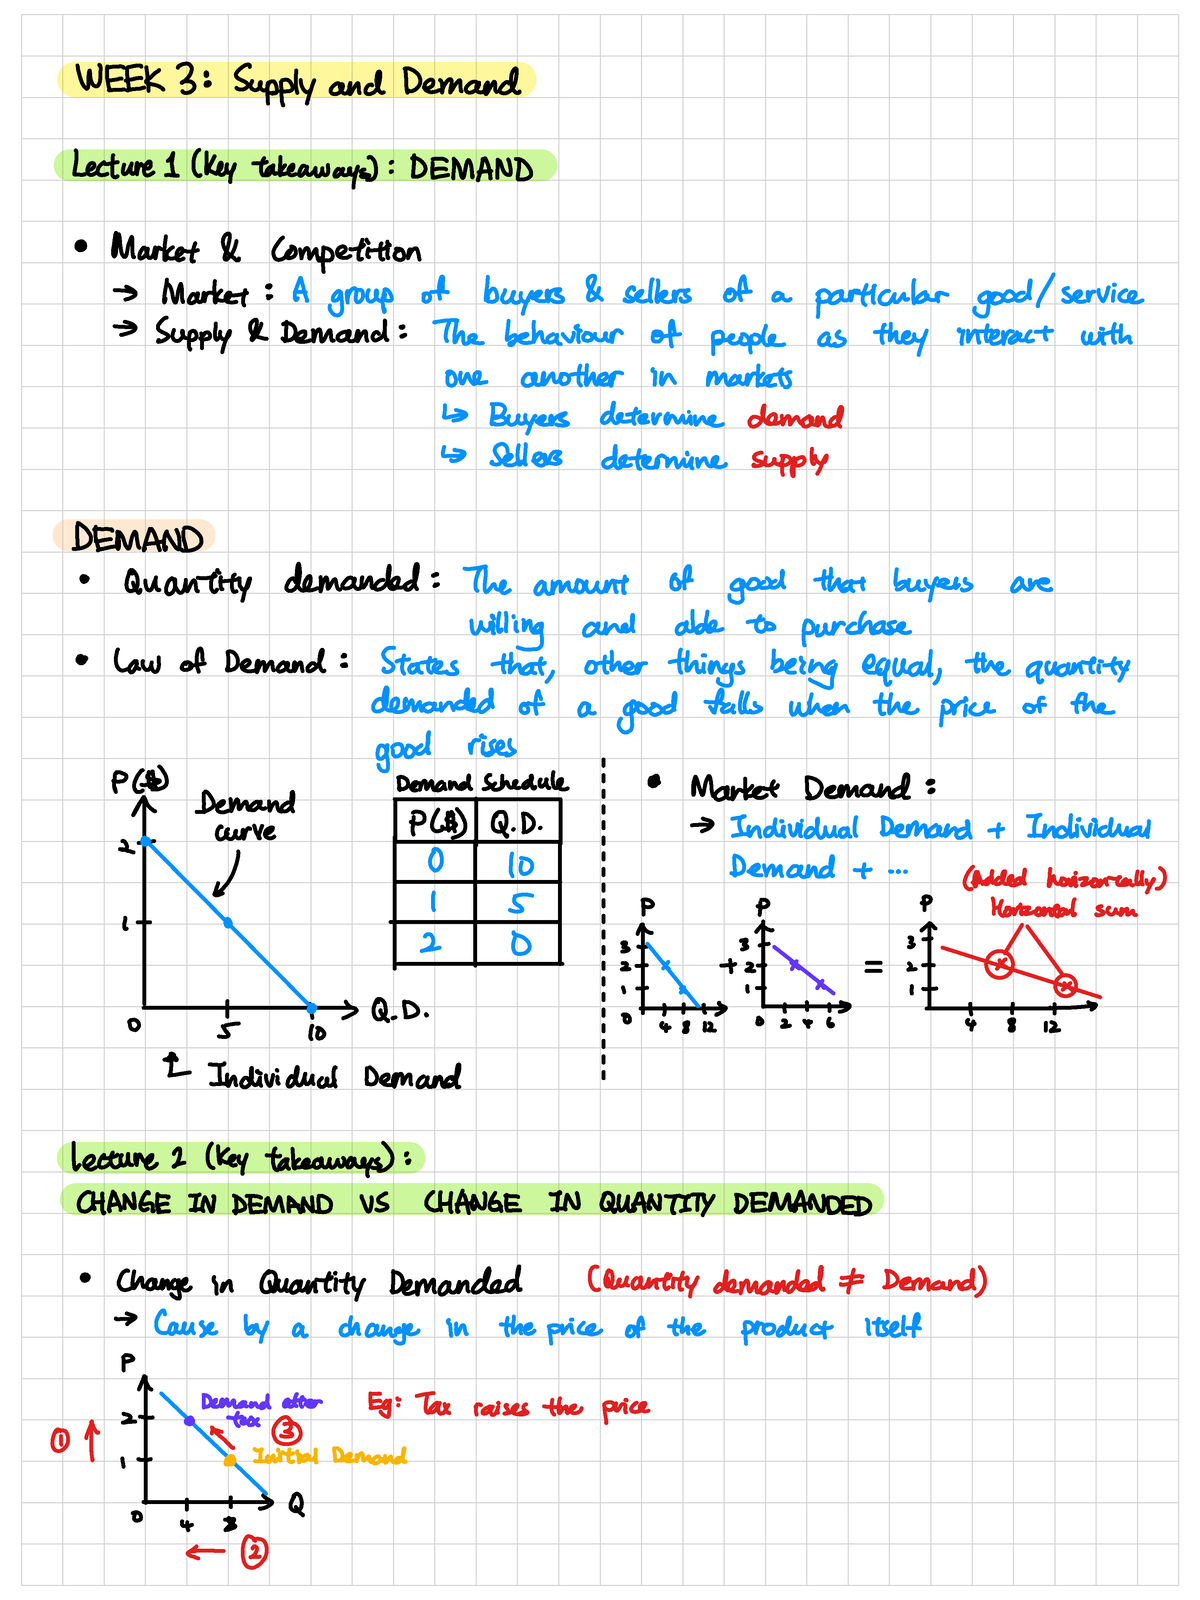 WEEK 3: Supply and Demand
Lecture 1 (Key takeaways): DEMAND
• Market & Competition
→ Market: A group of buyers & sellers of a particular good/service
→ Supply & Demand: The behaviour of people as they interact with
one another in markets
↳ Buyers determine demand
↳ Sellers determine supply
DEMAND
• Quantity demanded: The amount of good that buyers are
willing and able to purchase
• Law of Demand: States that, other things being equal, the quantity
demanded of a good falls when the price of the
good rises
P($)
Demand
curve
2
1
0
5
10
Q.D.
Individual Demand
Demand Schedule
P($) Q.D.
0 10
1 5
2 0
• Market Demand:
→ Individual Demand + Individual
Demand + ...
(Added horizontally)
Horizontal sum
P
3
2
1
0 4 8 12
+
P
3
2
1
0 2 4 6
=
P
3
2
1
4 8 12
Lecture 2 (Key takeaways):
CHANGE IN DEMAND VS CHANGE IN QUANTITY DEMANDED
• Change in Quantity Demanded (Quantity demanded ≠ Demand)
→ Cause by a change in the price of the product itself
P
Demand after
tax
Eg: Tax raises the price
2
1
① ↑
③
Initial Demand
0 4 8
Q
← ②